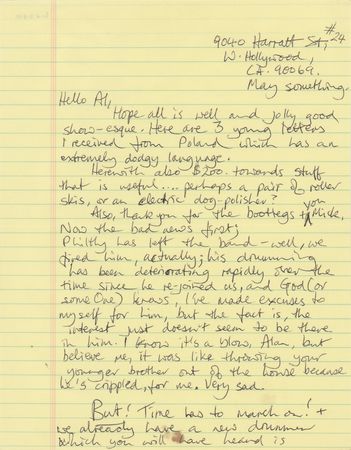 9040 Harratt St, #24
W. Hollywood,
CA. 90069.
May something.
Hello Al,
Hope all is well and jolly good
show-esque. Here are 3 young letters
I received from Poland which has an
extremely dodgy language.
Herewith also $200. towards stuff
that is useful.... perhaps a pair of roller
skis, or an electric dog-polisher?
Also, thank you for the bootlegs to you Mirke.
Now the bad news first;
Philthy has left the band - well, we
fired him, actually; his drumming
has been deteriorating rapidly over the
time since he re-joined us, and God (or
some One) knows, I've made excuses to
myself for him, but the fact is, the
interest just doesn't seem to be there
in him. I know it's a blow, Alan, but
believe me, it was like throwing your
younger brother out of the house because
he's crippled, for me. Very sad.
But! Time has to march on! +
we already have a new drummer
which you will have heard is